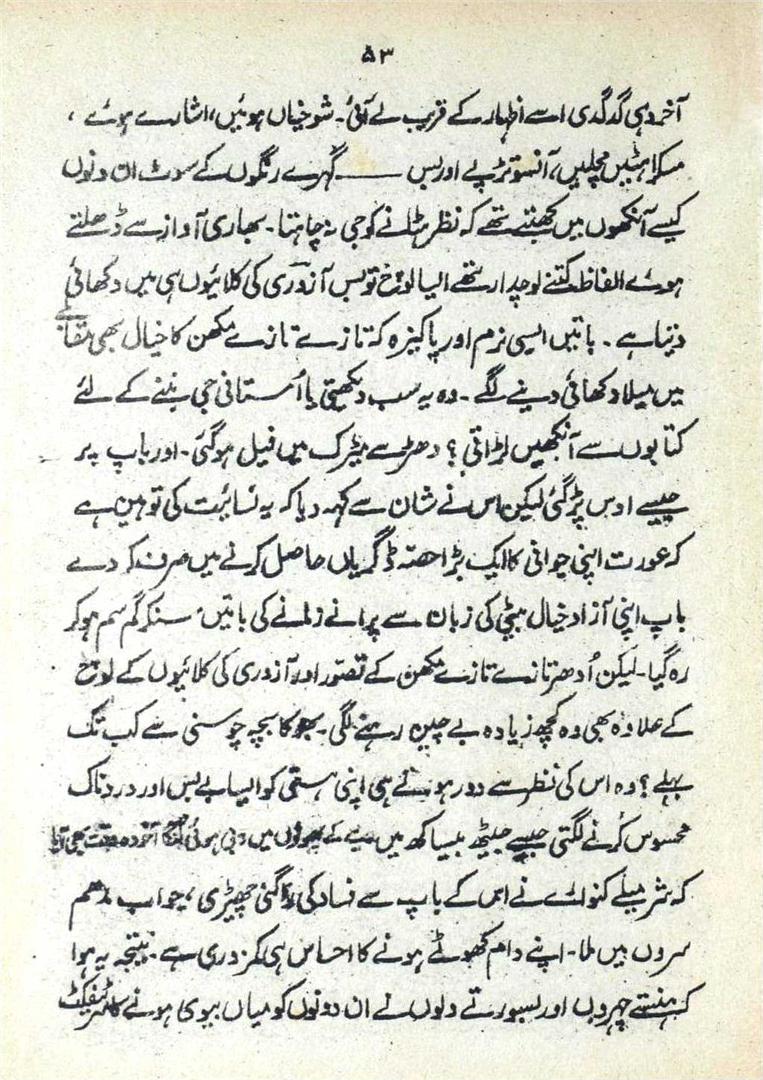 ۵۳
آخر وہی گدگدی اسے اظہار کے قریب لے آئی۔ شوخیاں ہوئیں، اشارے ہوئے،
مسکراہٹیں مچلیں، آنسو تڑپے اور بس —— گہرے رنگوں کے سوٹ ان دنوں
کیسے آنکھوں میں کھبتے تھے کہ نظر ہٹانے کو جی نہ چاہتا۔ بھاری آواز سے ڈھلتے
ہوئے الفاظ کتنے لوچدار تھے ایسا لوچ تو بس آزوری کی کلائیوں ہی میں دکھائی
دیتا ہے۔ باتیں ایسی نرم اور پاکیزہ کہ تازے تازے مکھن کا خیال بھی مقابلے
میں میلا دکھائی دینے لگے۔ وہ یہ سب دیکھتی یا اُستانی جی بننے کے لئے
کتابوں سے آنکھیں لڑاتی؟ دھڑ سے میٹرک میں فیل ہو گئی۔ اور باپ پر
جیسے اوس پڑ گئی لیکن اس نے شان سے کہہ دیا کہ یہ نسائیت کی توہین ہے
کہ عورت اپنی جوانی کا ایک بڑا حصہ ڈگریاں حاصل کرنے میں صرف کر دے
باپ اپنی آزاد خیال بیٹی کی زبان سے پرانے زمانے کی باتیں سنکر گم سم ہو کر
رہ گیا۔ لیکن اُدھر تازے تازے مکھن کے تصور اور آزوری کی کلائیوں کے لوچ
کے علاوہ بھی وہ کچھ زیادہ بے چین رہنے لگی۔ بھوکا بچہ چوسنی سے کب تک
بہلے؟ وہ اس کی نظر سے دور ہوتے ہی اپنی ہستی کو ایسا بے بس اور دردناک
محسوس کرنے لگتی جیسے جیٹھ بیساکھ میں کے میں دبی ہوئی آخر وہ وقت بھی آیا
کہ شرمیلے کنوارے نے اس کے باپ سے فساد کی راگنی چھیڑی، جواب مدھم
سروں میں ملا۔ اپنے دام کھوٹے ہونے کا احساس ہی کمزوری ہے۔ نتیجہ یہ ہوا
کہ ہنستے چہروں اور بسورتے دلوں نے ان دونوں کو میاں بیوی ہونے کا سرٹیفکیٹ